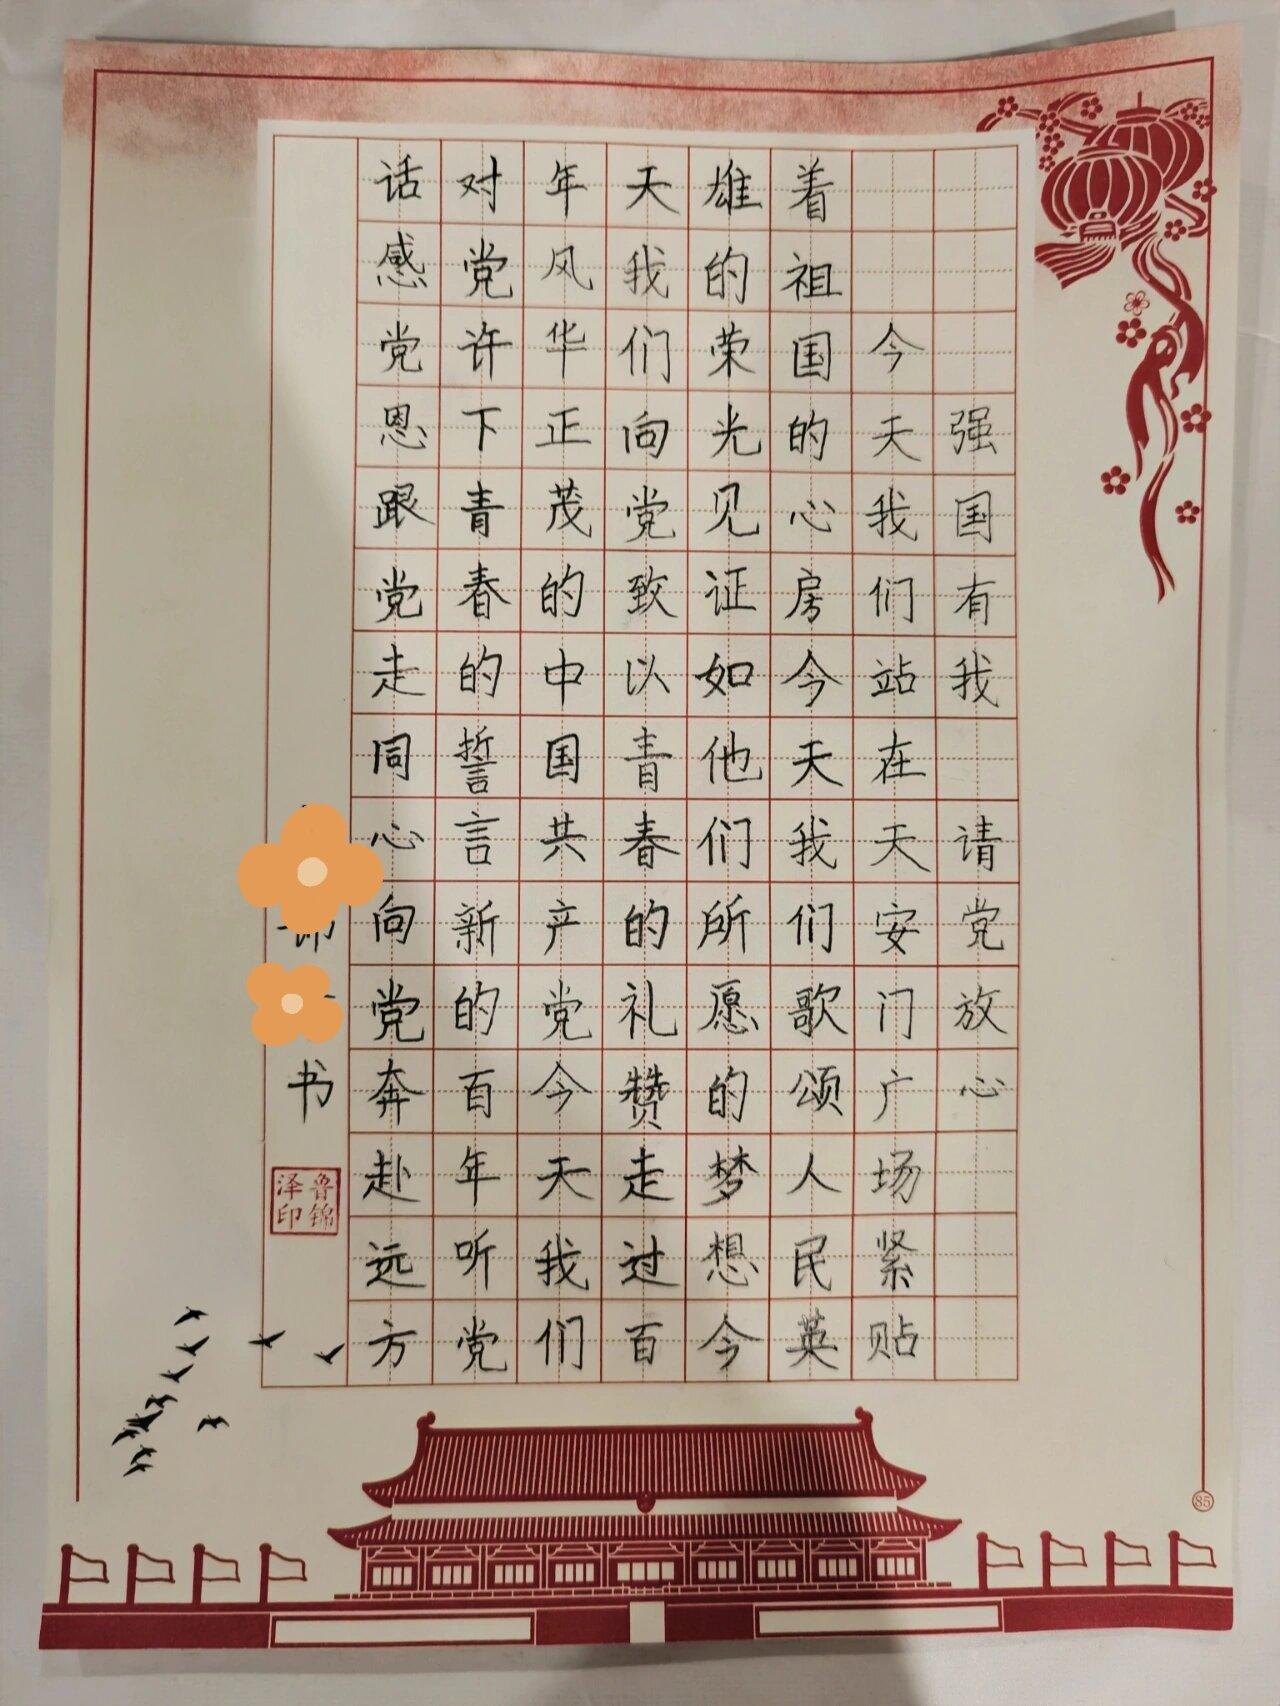 强国有我 请党放心
今天我们站在天安门广场紧贴
着祖国的心房今天我们歌颂人民英
雄的荣光见证如他们所愿的梦想今
天我们向党致以青春的礼赞走过百
年风华正茂的中国共产党今天我们
对党许下青春的誓言新的百年听党
话感党恩跟党走同心向党奔赴远方
书
鲁锦
泽印
85